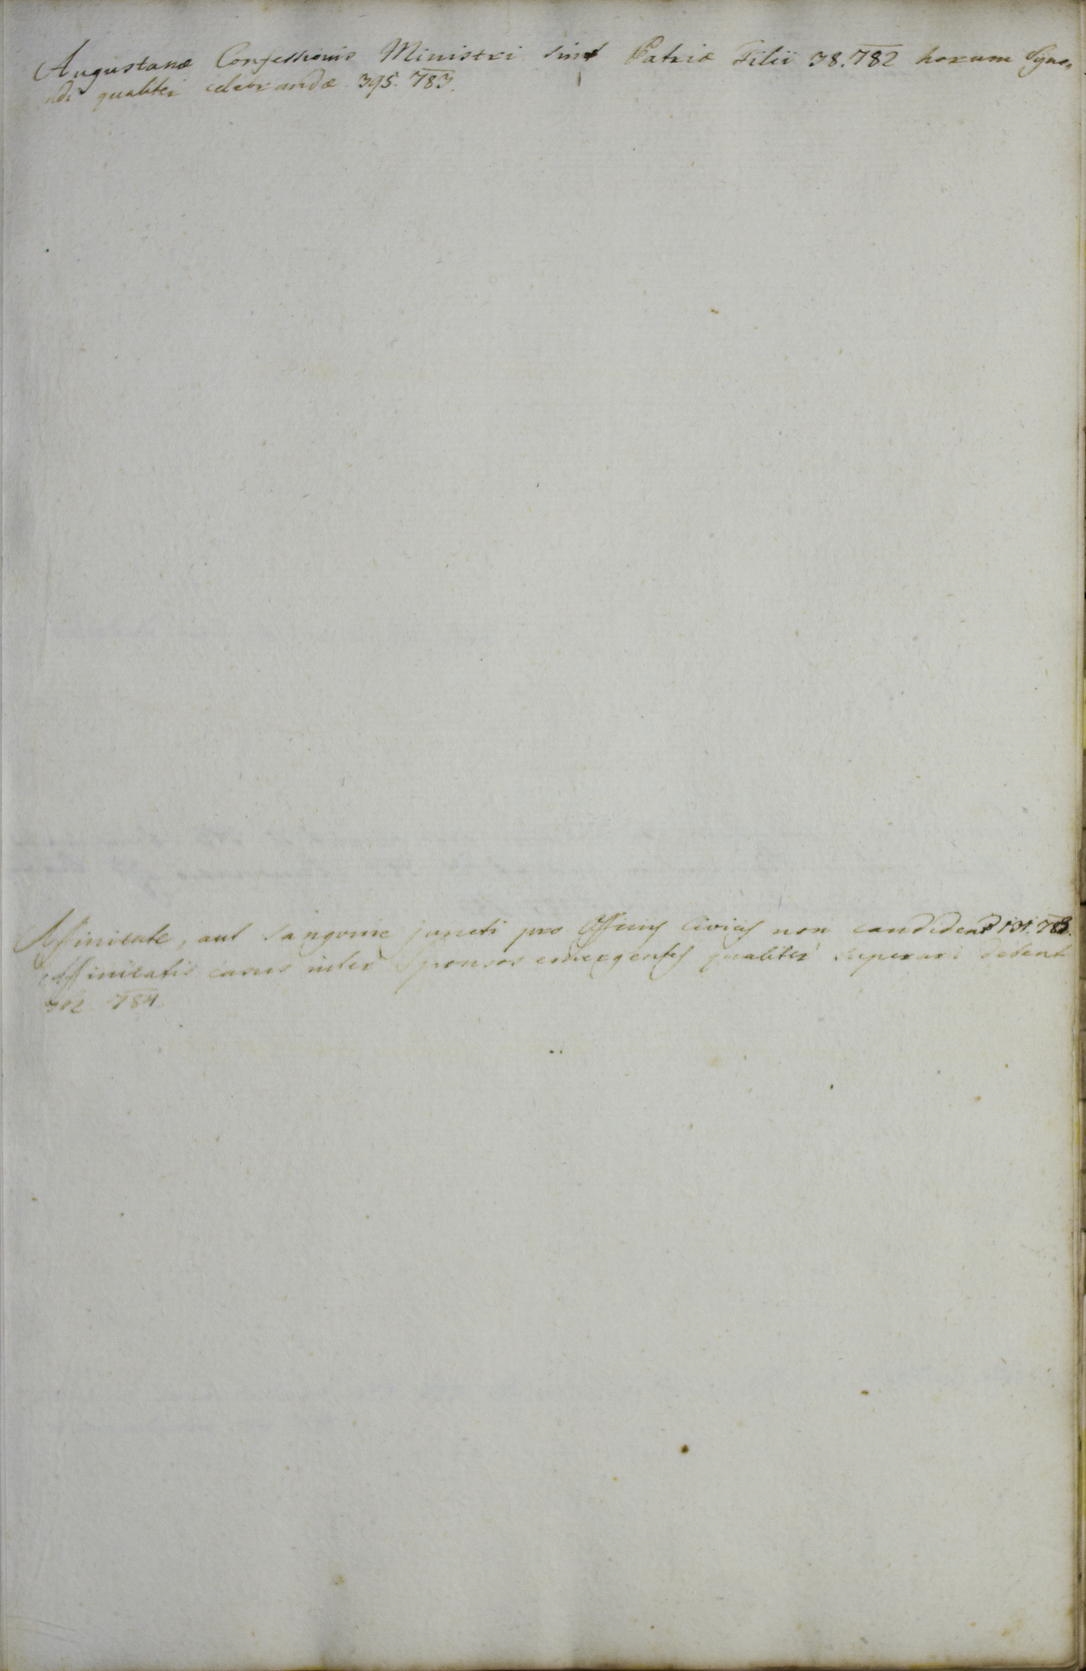 Augustanæ Confessionis Ministri sint Patriæ Filii 38. 782 horum Syno-
di qualiter celebrandæ 395. 783.
Affinitate, aut sangvine juncti pro Officiis Civicis non candident 131. 783.
Affinitatis casus inter Sponsos emergentes qualiter superari debent
784